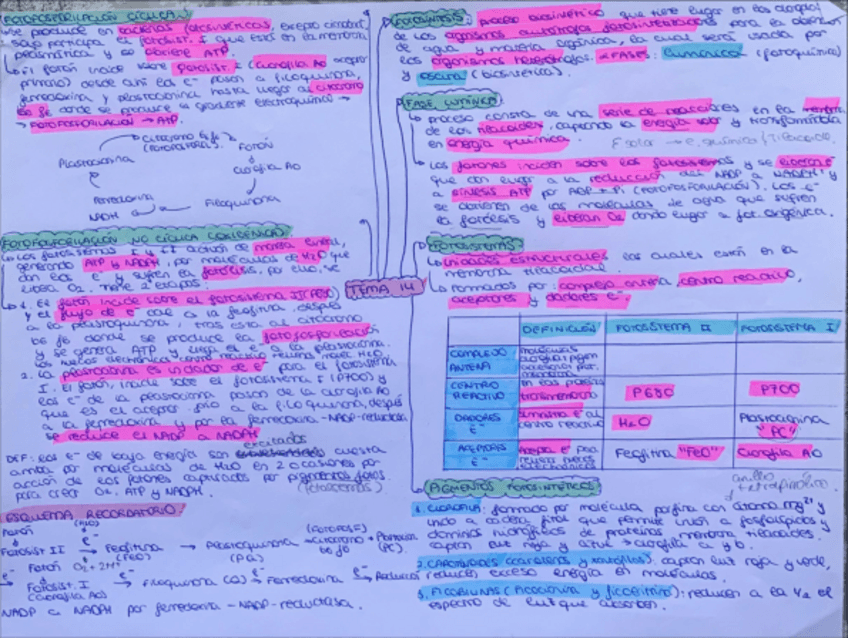 FOTOFOSFORILACIÓN CÍCLICA
se produce en bacterias fotosintéticas, excepto cianobact.
Solo participa el fotosist. I que está en la membrana
plasmática y se obtiene ATP.
El fotón incide sobre fotosist. I (clorofila A0 aceptor
primario) desde ahí los e- pasan a filoquinona,
ferredoxina y plastocianina hasta llegar al citocromo
b6f donde se produce el gradiente electroquímico →
→ FOTOFOSFORILACIÓN → ATP.
Citocromo b6f
(FOTOFOSFORIL.)
Fotón
Plastocianina
clorofila A0
Ferredoxina
NADH
Filoquinona
FOTOFOSFORILACIÓN NO CÍCLICA
Los fotosistemas I y II actúan de manera lineal,
generando ATP y NADPH, por moléculas de H2O que
don los e- y sufren la fotólisis, por ello, se
libera O2. Tiene 2 etapas:
1. El fotón incide sobre el fotosistema II (P680)
y el flujo de e- cae a la feofitina, después
a la plastoquinona, tras esta al citocromo
b6f donde se produce la fotofosforilación
y se genera ATP y luego el e- a la plastocianina.
2. La plastocianina es un dador de e- para el fotosistema
I. El fotón, incide sobre el fotosistema I (P700) y
los e- de la plastocianina pasan de la clorofila A0
que es el aceptor prio a la filoquinona, después
a la ferredoxina y por la ferredoxina-NADP-reductasa
se reduce el NADP a NADPH
excitados
DEF: los e- de baja energía son cuesta
arriba por moléculas de H2O en 2 ocasiones por
acción de los fotones capturados por pigmentos fotos.
para crear O2, ATP y NADPH.
ESQUEMA RECORDATORIO
Fotón
(FOTOFOSF)
Fotosist II → Feofitina → Plastoquinona → Citocromo → Plastocian
(FEO)
(PQ)
b6f
(PC)
Fotón O2 + 2H+
Fotosist. I → Filoquinona (Q) → Ferredoxina → Reducción
(Clorofila A0)
NADP a NADPH por ferredoxina-NADP-reductasa.
TEMA 14
FOTOSÍNTESIS: proceso biosintético que tiene lugar en los cloropl
de los organismos autótrofos fotosintetizadores para la obtención
de agua y materia orgánica, la cual será usada por
los organismos heterótrofos. 2 FASES: lumínica (fotoquímica)
y oscura (biosintética).
FASE LUMÍNICA
proceso consta de una serie de reacciones en la memb
de los tilacoides, captando la energía solar y transformándola
en energía química.
E solar → e. química / Tilacoide.
Los fotones inciden sobre los fotosistemas y se liberan e-
que dan lugar a la reducción del NADP a NADPH
y a síntesis ATP por ADP + Pi (FOTOFOSFORILACIÓN). Los e-
se obtienen de las moléculas de agua que sufren
la fotólisis y liberan O2 dando lugar a fot. orgénica.
FOTOSISTEMAS:
unidades estructurales las cuales están en la
membrana tilacoidal
Formados por: complejo antena, centro reactivo,
aceptores y dadores e-.
DEFINICIÓN FOTOSISTEMA II FOTOSISTEMA I
COMPLEJO
ANTENA
CENTRO
REACTIVO
P680 P700
DADORES
e-
suministra e- al
centro reactivo
H2O
Plastocianina
"PC"
ACEPTORES
e-
Acepta e-
Feofitina "FEO" Clorofila A0
PIGMENTOS FOTOSINTÉTICOS
anillo
tetrapirrólico
1. CLOROFILA: formado por molécula porfirina con átomo Mg2+
y unido a cadena fitol que permite unión a fosfolípidos y
dominios hidrofóbicos de proteínas membrana tilacoides.
captan luz roja y azul → clorofila a y b.
2. CAROTENOIDES (carotenos y xantofilas): captan luz roja y verde,
reducen exceso energía en moléculas.
3. FICOBILINAS (ficocianina y ficoeritrina): reducen a la 1/2 el
espectro de luz que absorben.